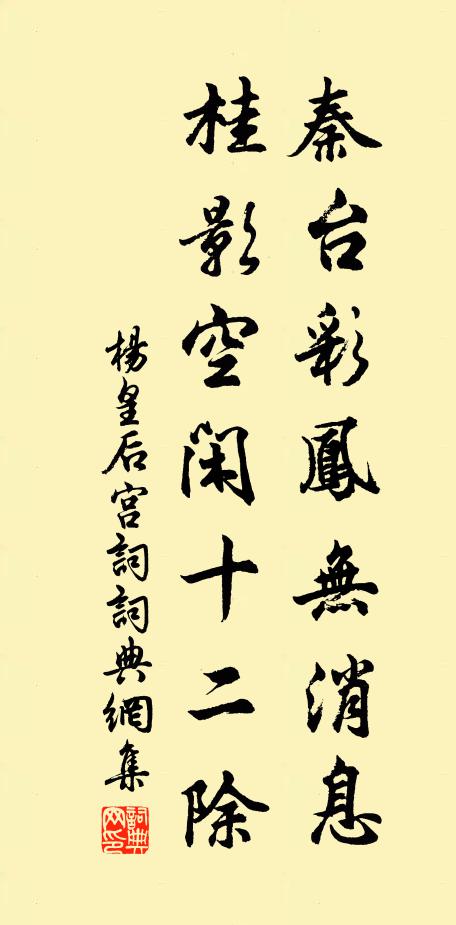 秦台彩鳳無消息
桂影空閑十二除
楊皇后宮詞詞典網集
詞典网印